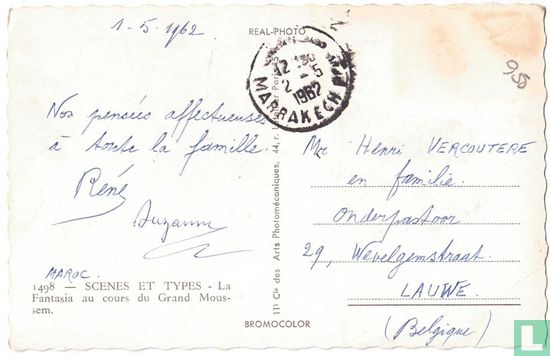 1-5-1962
REAL-PHOTO
950
12 H30
2 - 5
1962
MARRAKECH
Nos pensées affectueuses
à toute la famille
René
Suzanne
MAROC.
1498 — SCENES ET TYPES - La
Fantasia au cours du Grand Mous-
sem.
111 Cie des Arts Photomécaniques, 44, r. Paris
BROMOCOLOR
Mr Henri VERCOUTERE
en famille.
Onderpastoor
29, Wevelgemstraat.
LAUWE.
(Belgique)